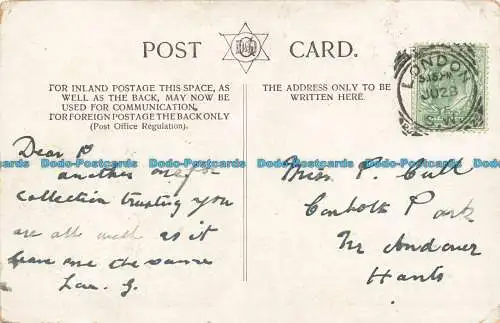 POST CARD.
FOR INLAND POSTAGE THIS SPACE, AS
WELL AS THE BACK, MAY NOW BE
USED FOR COMMUNICATION.
FOR FOREIGN POSTAGE THE BACK ONLY
(Post Office Regulation).
THE ADDRESS ONLY TO BE
WRITTEN HERE.
LONDON
JU 28
Dear P
another one for
collection trusting you
are all well as it
leave me the same
Miss P. Cull
Park
Nr Andover
Hants
Dodo-Postcards Dodo-Postcards Dodo-Postcards Dodo-Postcards Dodo-Postcards